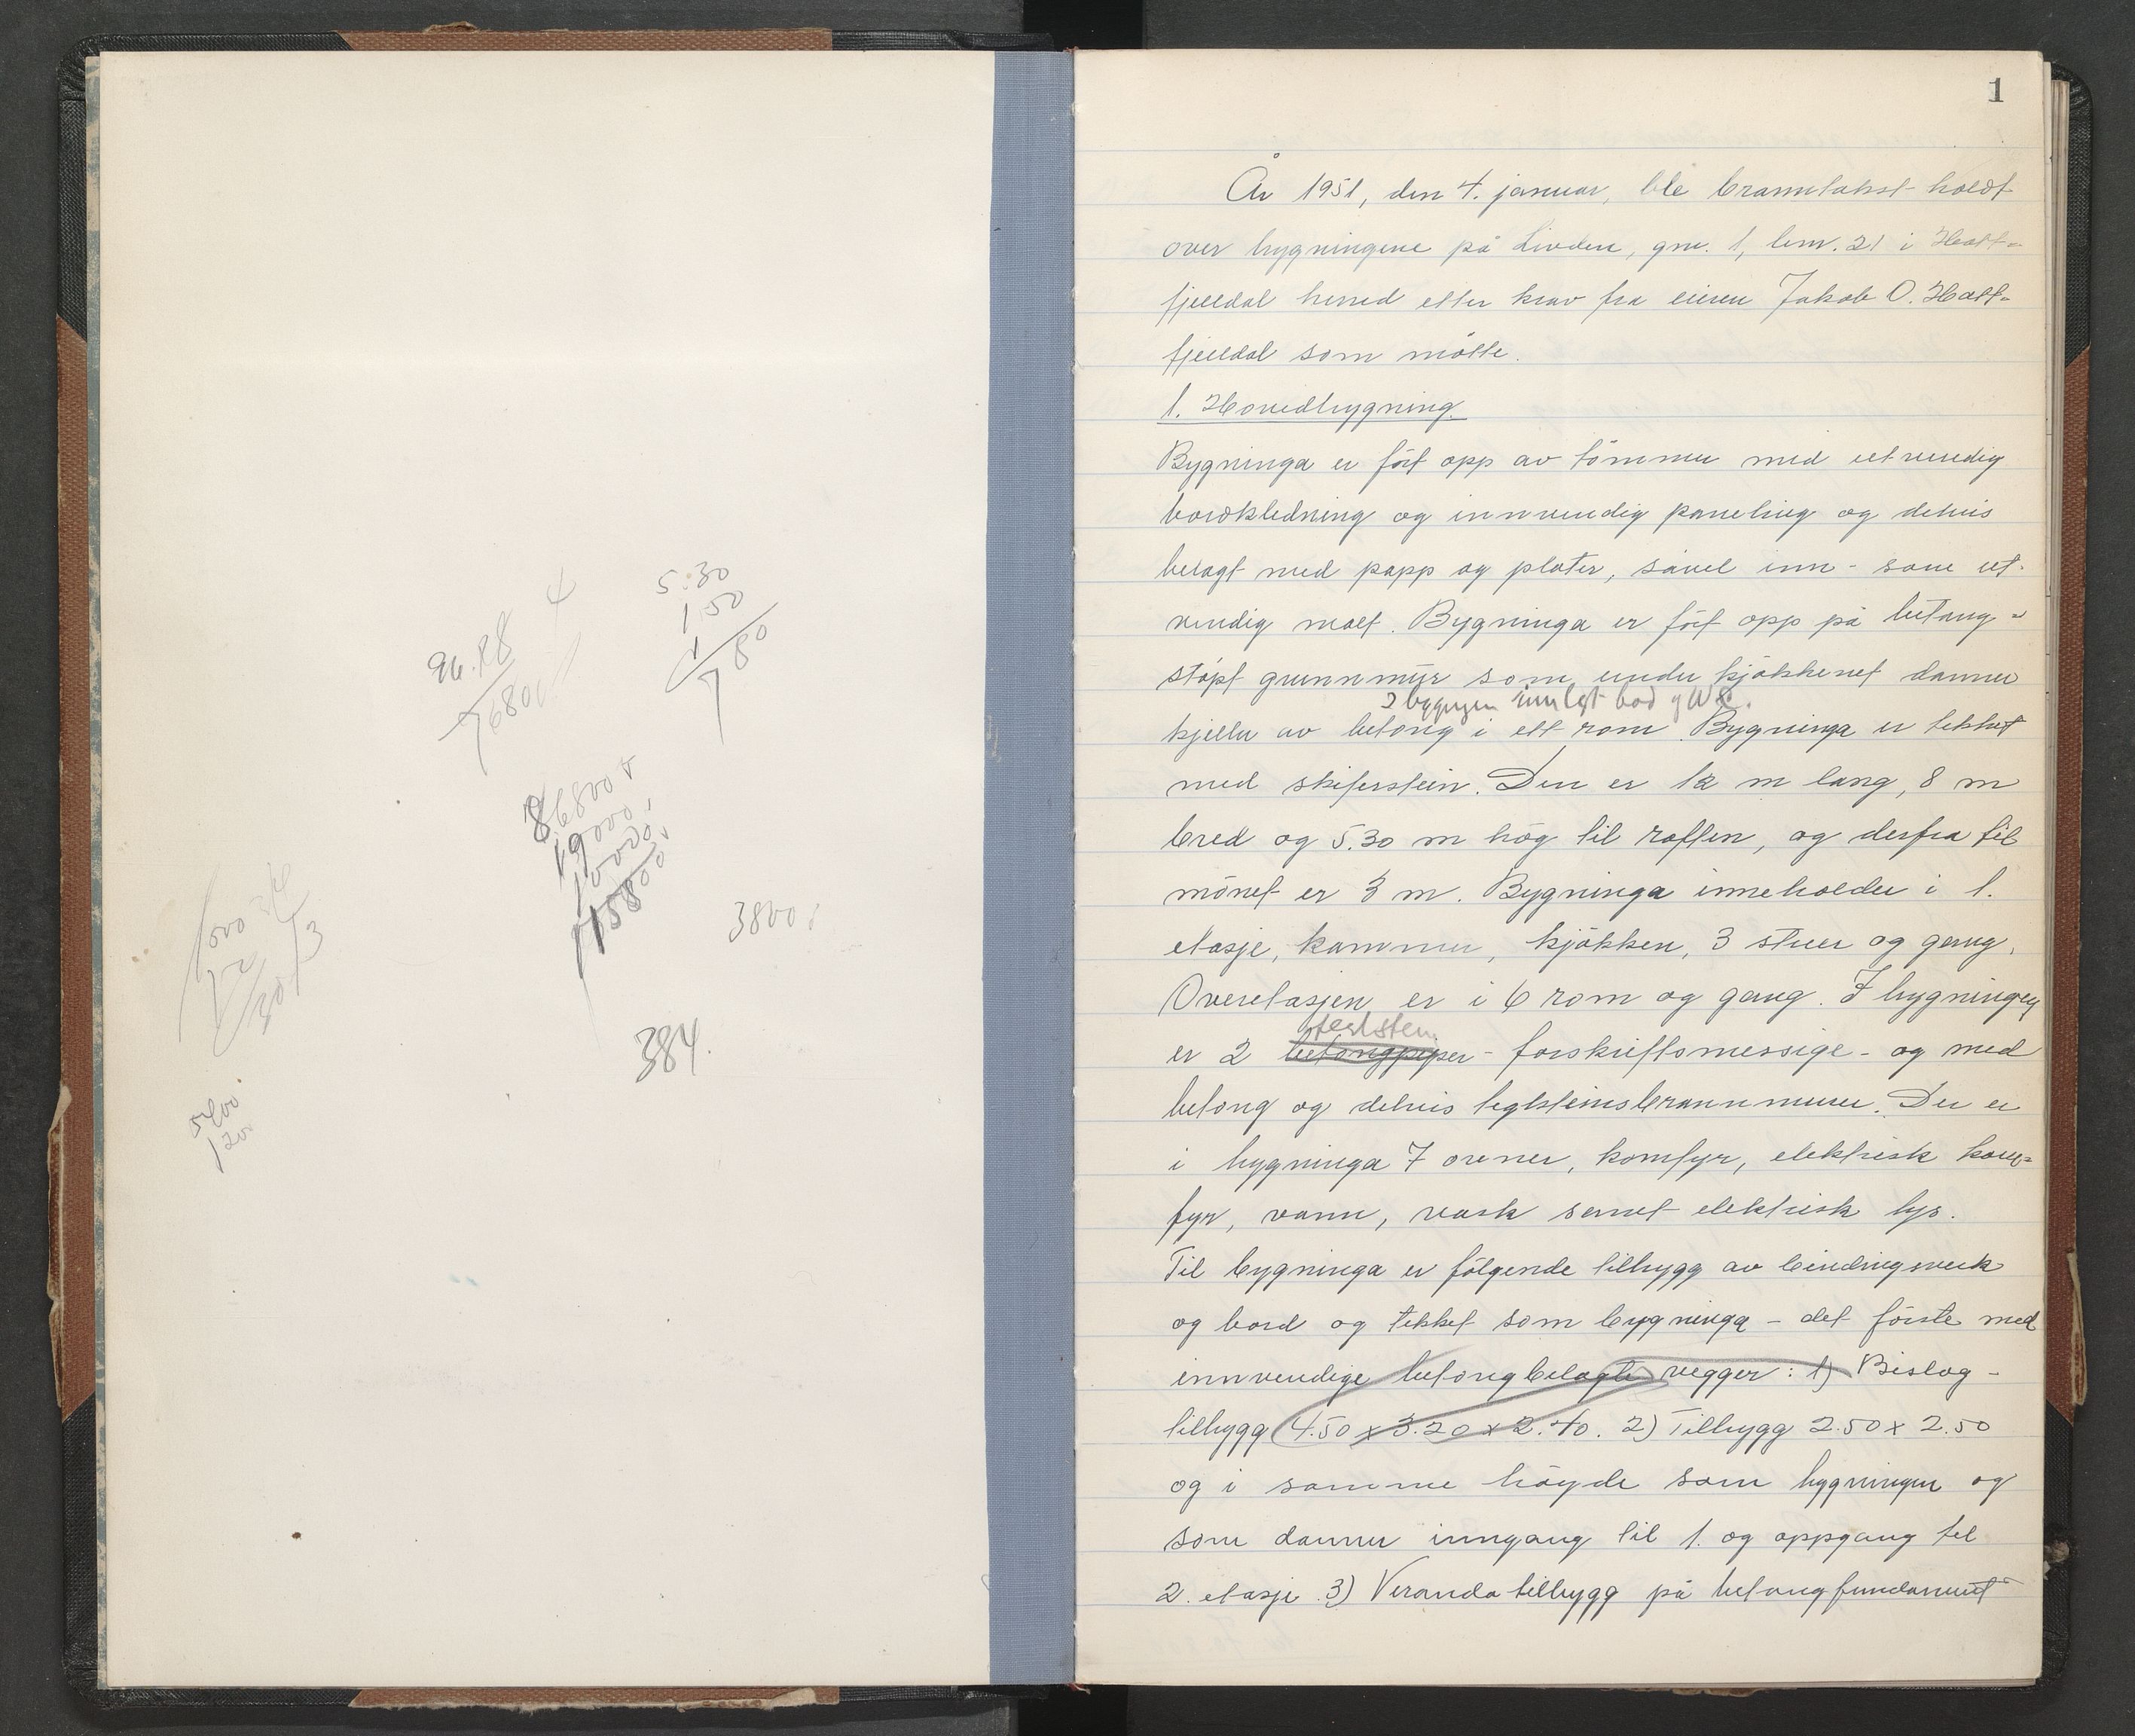 5.30
1.50
1
7 80
4
96.88
7680
86800
19000
10000
1158
3800
384.
500
12
30
3
5400
120
1
År 1951, den 4. januar, ble branntakst holdt
over bygningene på Livden, gnr. 1, bnr. 21 i Hatt=
fjelldal herred etter krav fra eieren Jakob O. Hatt=
fjelldal som møtte.
1. Hovedbygning.
Bygninga er ført opp av tømmer med utvendig
bordkledning og innvendig paneling og delvis
belagt med papp og plater, såvel inn- som ut-
vendig malt. Bygninga er ført opp på betong=
støpt grunnmur som under kjøkkenet danner
I bygngen innlagt bad og WC.
kjeller av betong i ett rom. Bygninga er tekket
med skiferstein. Den er 12 m lang, 8 m
bred og 5.30 m høg til raften, og derfra til
mønet er 3 m. Bygninga inneholder i 1.
etasje, kammer, kjøkken, 3 stuer og gang.
Overetasjen er i 6 rom og gang. I bygningen
teglsten
er 2 betongpiper - forskriftsmessige - og med
betong og delvis teglsteinsbrannmurer. Der er
i bygninga 7 ovner, komfyr, elektrisk kom=
fyr, vann, vask samt elektrisk lys.
Til bygninga er følgende tilbygg av bindingsverk
og bord og tekket som bygninga - det første med
innvendige betongbelagte vegger: 1) Bislag-
tilbygg 4.50 x 3.20 x 2.40. 2) Tilbygg 2.50 x 2.50
og i samme høyde som bygningen og
som danner inngang til 1. og oppgang til
2. etasje. 3) Verandatilbygg på betongfundament